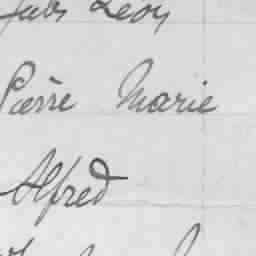 Jules Léon
Pierre Marie
Alfred